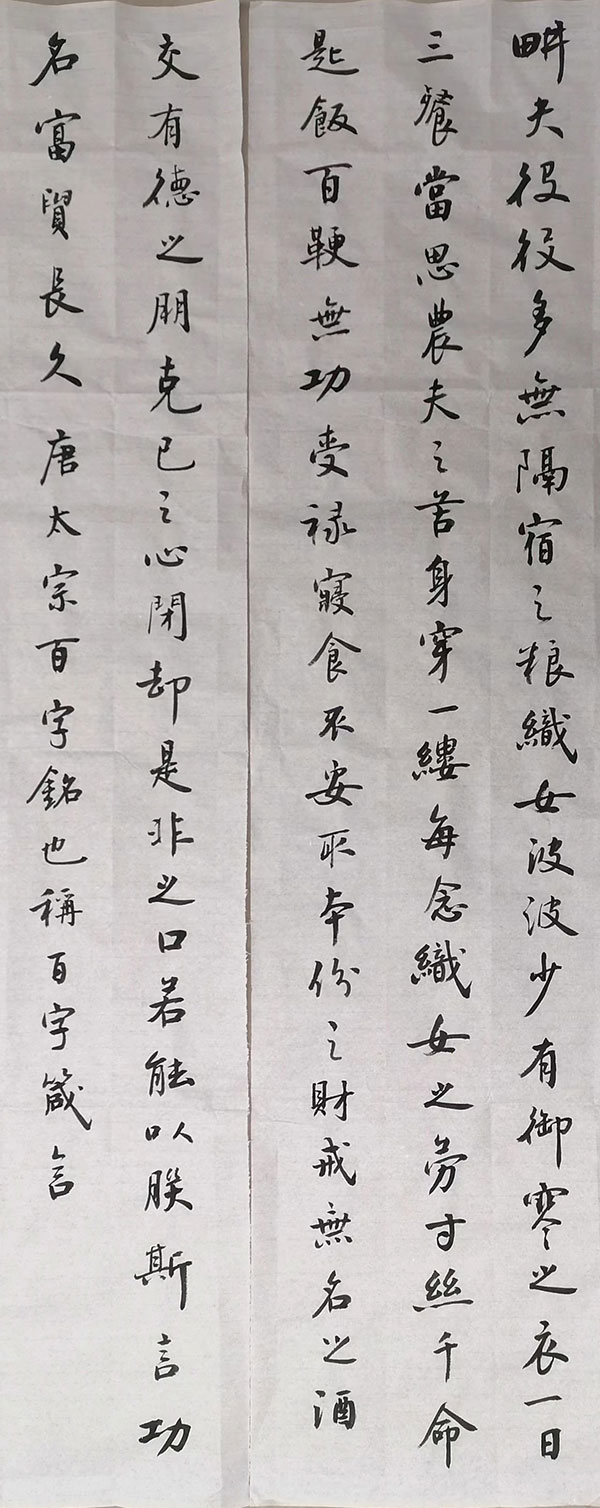 畊夫役役多無隔宿之粮織女波波少有御寒之衣一日
三餐當思農夫之苦身穿一縷每念織女之勞寸絲千命
匙飯百鞭無功受祿寢食不安取本份之財戒無名之酒
交有德之朋克己之心閉却是非之口若能以朕斯言功
名富貿長久唐太宗百字銘也稱百字箴言